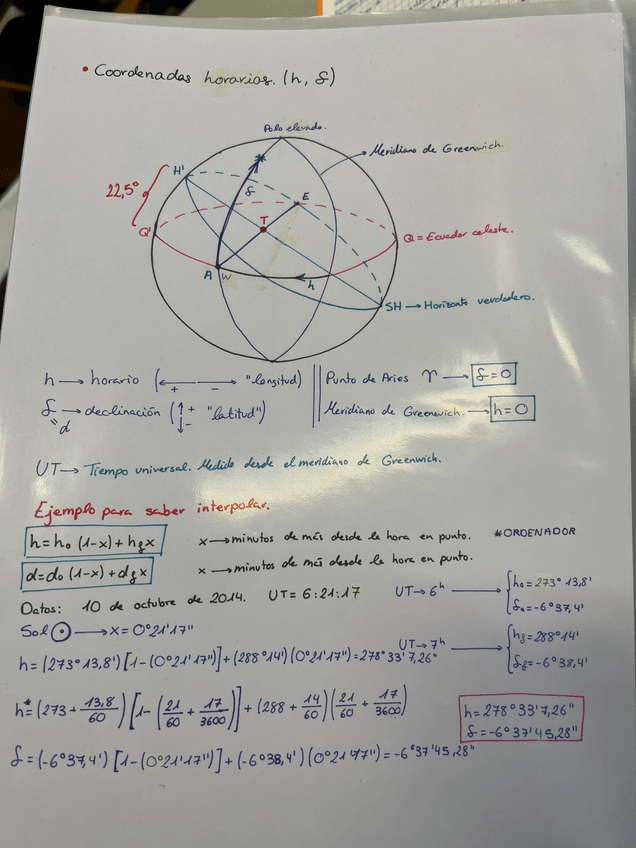 • Coordenadas horarias. (h, δ)
Polo elevado.
Meridiano de Greenwich.
H'
22,5°
δ
E
Q'
T
Q = Ecuador celeste.
A
W
h
SH → Horizonte verdadero.
h → horario (←+ −→ "longitud)
Punto de Aries ♈ → δ=0
δ → declinación (↑+ ↓− "latitud")
"d
Meridiano de Greenwich. → h=0
UT → Tiempo universal. Medido desde el meridiano de Greenwich.
Ejemplo para saber interpolar.
h=h₀ (1-x) + hf x
x → minutos de más desde la hora en punto.
*ORDENADOR
d=d₀ (1-x) + df x
x → minutos de más desde la hora en punto.
Datos: 10 de octubre de 2014. UT= 6:21:17
UT → 6ʰ → { h₀ = 273° 13,8'
δ₀ = -6° 37,4'
Sol ⊙ → x= 0°21'17"
UT → 7ʰ → { hf = 288° 14'
δf = -6° 38,4'
h= (273° 13,8') [1-(0°21'17")] + (288° 14') (0°21'17") = 278° 33' 7,26"
h*= (273 + 13,8/60) [1-(21/60 + 17/3600)] + (288 + 14/60) (21/60 + 17/3600)
h= 278° 33' 7,26"
δ= -6° 37' 45,28"
δ= (-6° 37,4') [1-(0°21'17")] + (-6° 38,4') (0°21'17") = -6° 37' 45,28"